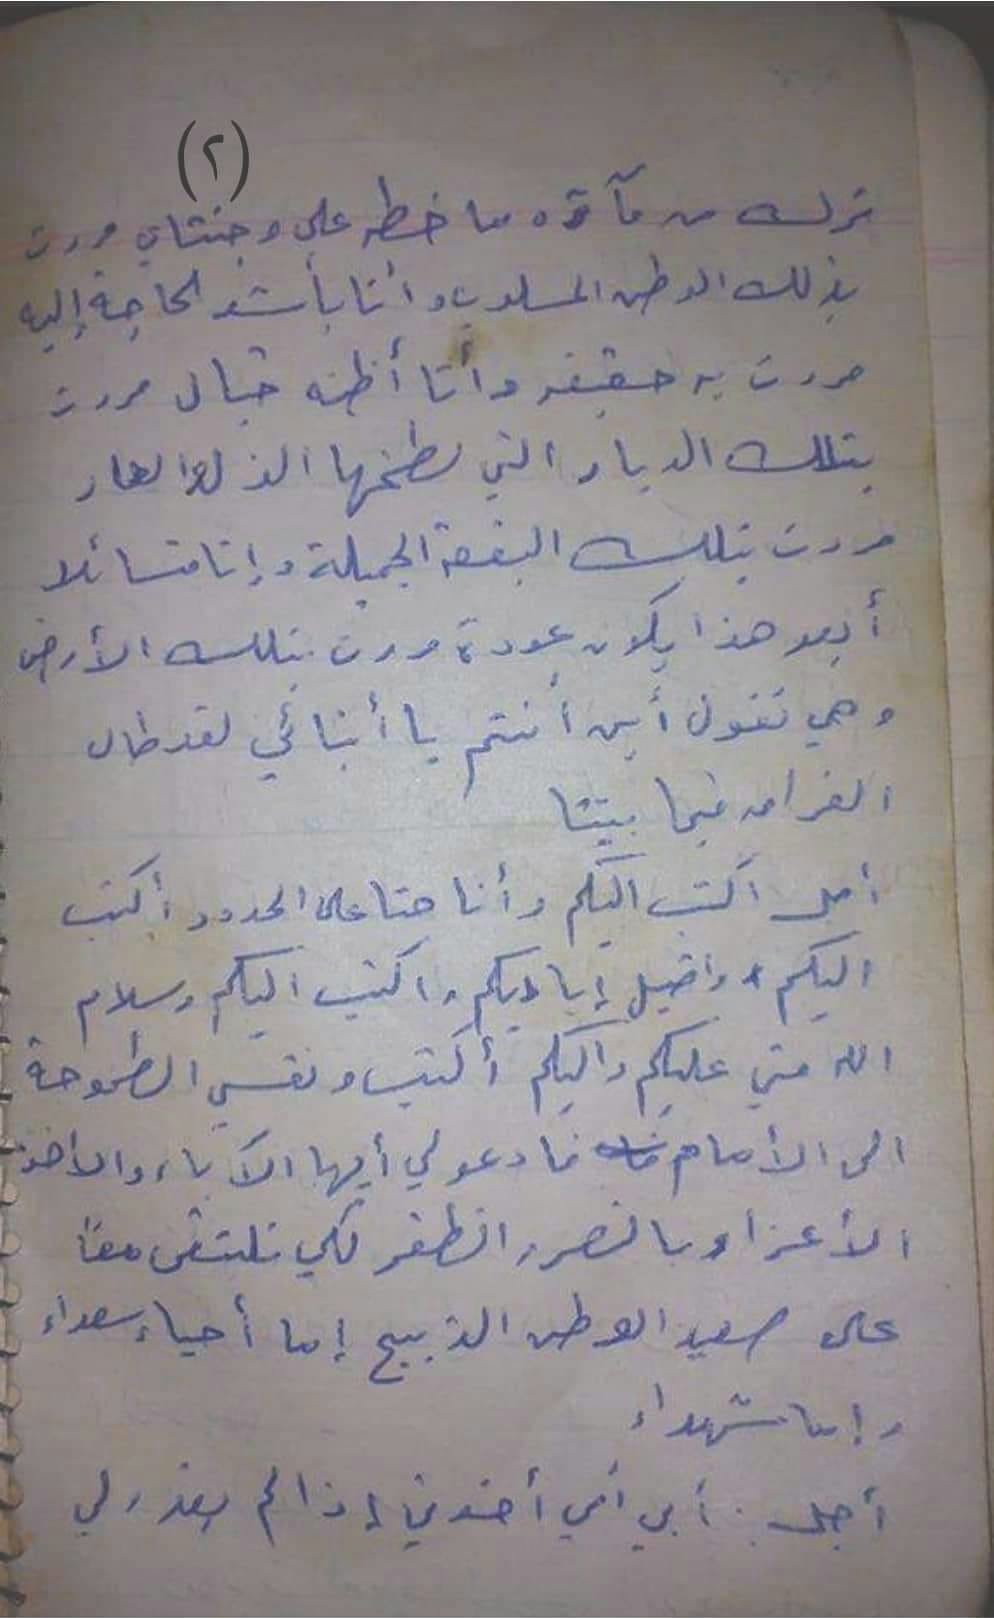 (٢)
ترك من مآقره ما خطه على وجنتاي مررت
بذلك الوطن المسلوب وأنا بأشد الحاجة إليه
مررت به حقيقه وأنا أظنه خيال مررت
بتلك الديار التي لطخها الذل والعار
مررت بتلك البقعة الجميلة وإنا متسائلا
أبعد هذا يكون عودة مررت بتلك الأرض
وهي تقول أين أنتم يا أبنائي لقد طال
الفراق فيما بيننا
أجل اكتب اليكم وأنا هنا على الحدود أكتب
اليكم واقبل إياديكم واكتب اليكم وسلام
الله مني عليكم واليكم أكتب ونفسي الطموحة
الى الأمام فادعو لي أيها الآباء والاخوة
الأعزاء بالنصر والظفر لكي نلتقي معا
على صعيد الوطن الذبيح إما أحياء سعداء
وإما شهداء
أجل : أبي أمي أخوتي إذا لم يقدر لي